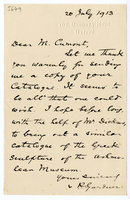 5649
20 July 1913
Dear M. Cumont,
Let me thank
you warmly for sending
me a copy of your
Catalogue. It seems to
be all that one could
wish. I hope before long
with the help of Mr
to bring out a similar
catalogue of the Greek
sculpture of the Ashmo-
lean Museum.
Yours sincerely
P. Gardner